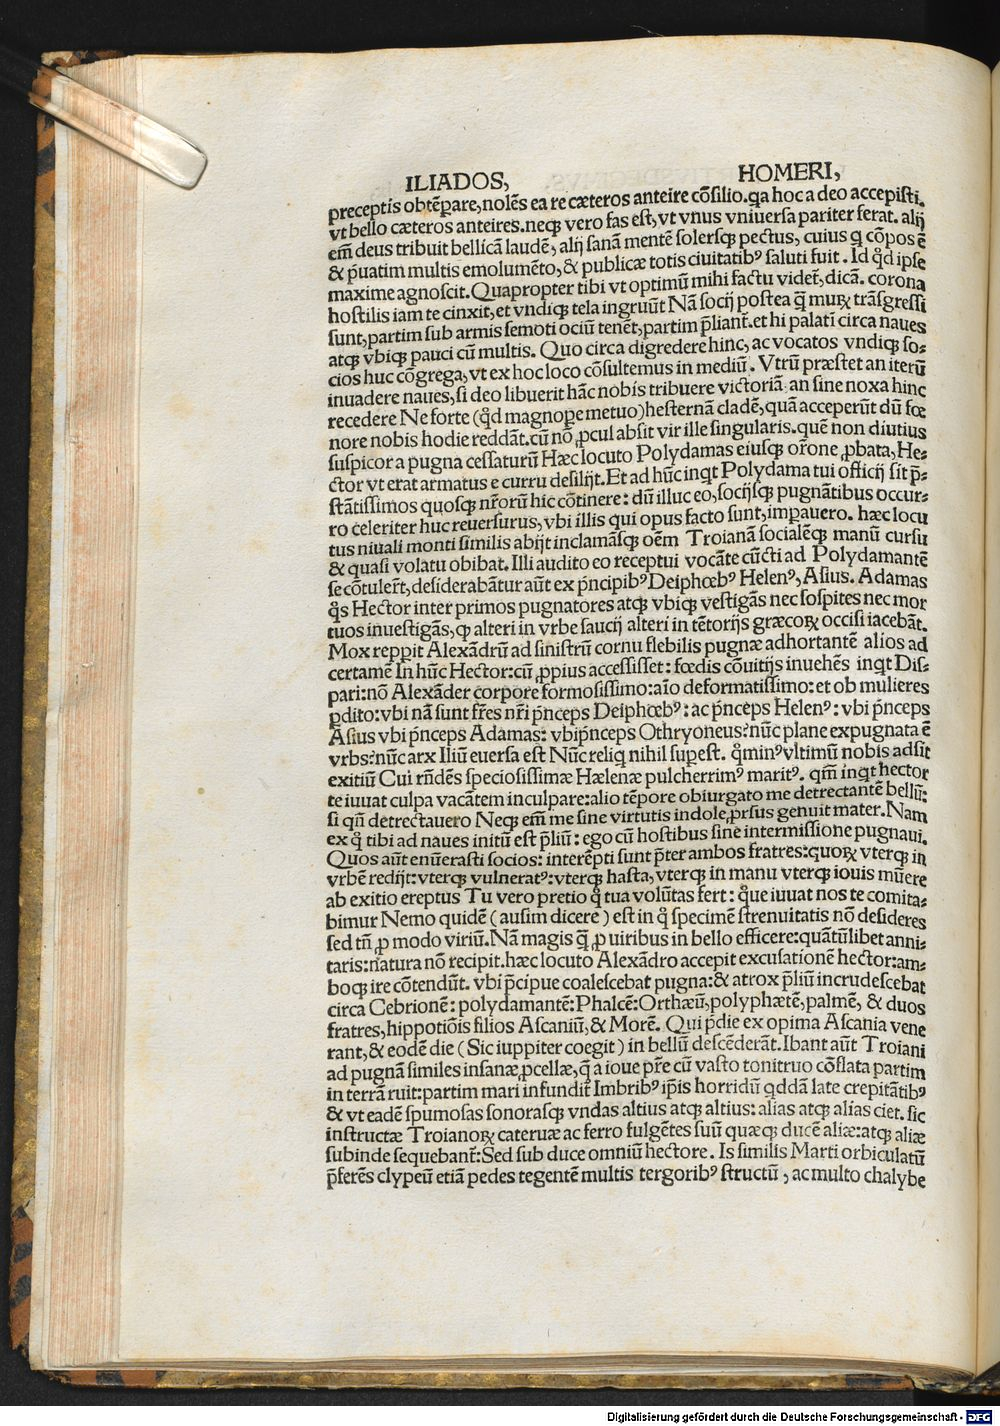 ILIADOS, HOMERI,
preceptis obtēpare, nolēs ea re cæteros anteire cōsilio. qa hoc a deo accepisti.
vt bello cæteros anteires. neqꝫ vero fas est, vt vnus vniuersa pariter ferat. alij
em̄ deus tribuit bellicā laudē, alij sanā mentē solersqꝫ pectus, cuius q cōpos ē
& p̄uatim multis emolumēto, & publicæ totis ciuitatibꝰ saluti fuit. Id qd̄ ipse
maxime agnoscit. Quapropter tibi vt optimū mihi factu videt̄, dicā. corona
hostilis iam te cinxit, et vndiqꝫ tela ingruūt Nā socij postea q̄ muꝝ trāsgressi
sunt, partim sub armis semoti ociū tenēt, partim p̄liant̄. et hi palati circa naues
atqꝫ vbiqꝫ pauci cū multis. Quo circa digredere hinc, ac vocatos vndiqꝫ so⸗
cios huc cōgrega, vt ex hoc loco cōsultemus in mediū. Vtrū præstet an iterū
inuadere naues, si deo libuerit hāc nobis tribuere victoriā an sine noxa hinc
recedere Ne forte (qd̄ magnope metuo) hesternā cladē, quā acceperūt dū fœ
nore nobis hodie reddāt. cū nō ꝓcul absit vir ille singularis. quē non diutius
suspicor a pugna cessaturū Hæc locuto Polydamas eiusqꝫ or̄one ꝓbata, He⸗
ctor vt erat armatus e curru desilijt. Et ad hūc inqt Polydama tui officij sit p̄⸗
stātissimos quosqꝫ nr̄orū hic cōtinere: dū illuc eo, socijsqꝫ pugnātibus occur⸗
ro celeriter huc reuersurus, vbi illis qui opus facto sunt, impauero. hæc locu
tus niuali monti similis abijt inclamāsqꝫ oēm Troianā socialēqꝫ manū cursu
& quasi volatu obibat. Illi audito eo receptui vocāte cūcti ad Polydamantē
se cōtuler̄t, desiderabātur aūt ex p̄ncipibꝰ Deiphœbꝰ Helenꝰ, Asius. Adamas
q̄s Hector inter primos pugnatores atqꝫ vbiqꝫ vestigās nec sospites nec mor
tuos inuestigās, ꝙ alteri in vrbe saucij alteri in tētorijs græcoꝝ occisi iacebāt.
Mox reppit Alexādrū ad sinistrū cornu flebilis pugnæ adhortantē alios ad
certamē In hūc Hector: cū ꝓpius accessisset: fœdis cōuitijs inuehēs inqt Dis⸗
pari: nō Alexāder corpore formosissimo: aīo deformatissimo: et ob mulieres
pdito: vbi nā sunt fr̄es nr̄i p̄nceps Deiphœbꝰ: ac p̄nceps Helenꝰ: vbi p̄nceps
Asius vbi p̄nceps Adamas: vbip̄nceps Othryoneus? nūc plane expugnata ē
vrbs? nūc arx Iliū euersa est Nūc reliq nihil supest. qͦminꝰ vltimū nobis adsit
exitiū Cui rn̄dēs speciosissimæ Hælenæ pulcherrimꝰ maritꝰ. qm̄ inqt hector
te iuuat culpa vacātem inculpare: alio tēpore obiurgato me detrectantē bellū:
si qn̄ detrectauero Neqꝫ em̄ me sine virtutis indole ꝓrsus genuit mater. Nam
ex qͦ tibi ad naues initū est p̄liū: ego cū hostibus sine intermissione pugnaui.
Quos aūt enūerasti socios: interēpti sunt p̄ter ambos fratres: quoꝝ vterqꝫ in
vrbē redijt: vterqꝫ vulneratꝰ: vterqꝫ hasta, vterqꝫ in manu vterqꝫ iouis mūere
ab exitio ereptus Tu vero pretio qͦ tua volūtas fert: qͦue iuuat nos te comita⸗
bimur Nemo quidē (ausim dicere) est in qͦ specimē strenuitatis nō desideres
sed tn̄ ꝓ modo viriū. Nā magis q̄ ꝓ uiribus in bello efficere: quātūlibet anni⸗
taris: natura nō recipit. hæc locuto Alexādro accepit excusationē hector: am⸗
boqꝫ ire cōtendūt. vbi p̄cipue coalescebat pugna: & atrox p̄liū incrudescebat
circa Cebrionē: polydamantē: Phalcē: Orthæū, polyphætē, palmē, & duos
fratres, hippotiōis filios Ascaniū, & Morē. Qui p̄die ex opima Ascania vene
rant, & eodē die (Sic iuppiter coegit) in bellū descēderāt. Ibant aūt Troiani
ad pugnā similes insanæ ꝓcellæ, q̄ a ioue pr̄e cū vasto tonitruo cōflata partim
in terrā ruit: partim mari infundit̄ Imbribꝰ ip̄is horridū qddā late crepitātibꝰ
& vt eadē spumosas sonorasqꝫ vndas altius atqꝫ altius: alias atqꝫ alias ciet. sic
instructæ Troianoꝝ cateruæ ac ferro fulgētes suū quæqꝫ ducē aliæ: atqꝫ aliæ
subinde sequebant̄: Sed sub duce omniū hectore. Is similis Marti orbiculatū
p̄ferēs clypeū etiā pedes tegentē multis tergoribꝰ structū, ac multo chalybe
Digitalisierung gefördert durch die Deutsche Forschungsgemeinschaft - DFG